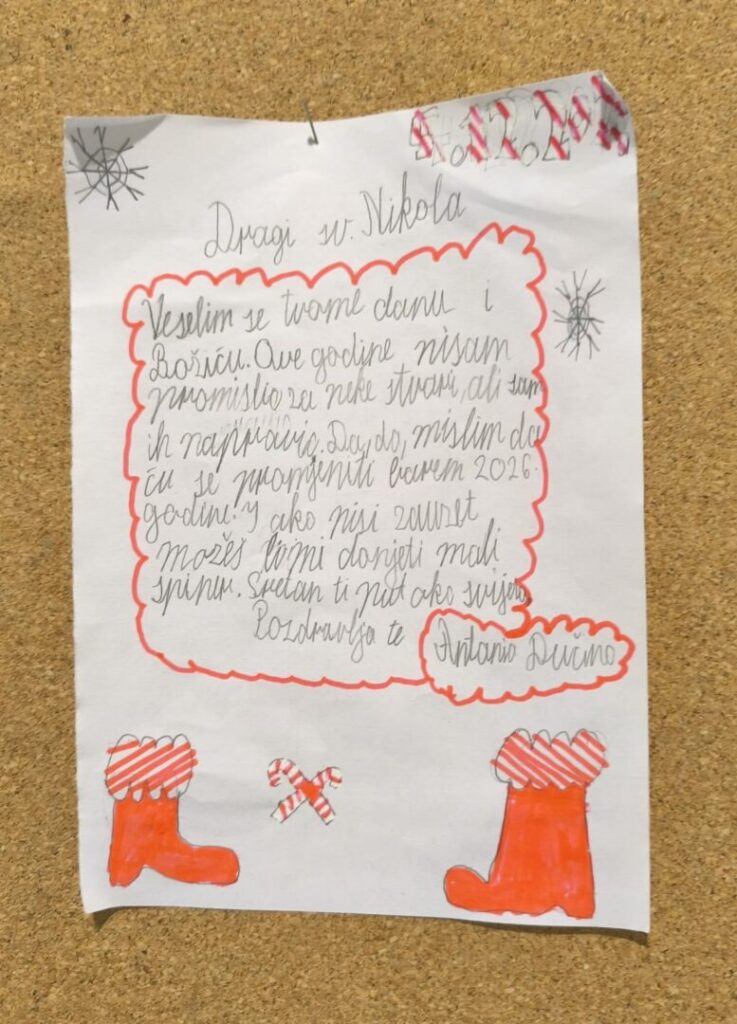 Dragi sv. Nikola
Veselim se tvome danu i
Božiću. Ove godine nisam
promislio za neke stvari, ali sam
ih napravio. Da, do, mislim da
ću se promjeniti barem 2026.
godine. I ako nisi zauzet
možeš mi donjeti mali
spiner. Sretan ti put oko svijeta
Pozdravlja te
Antonio